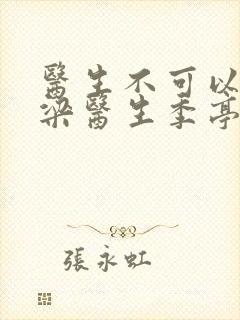 醫生不可以
梁醫生季亭
張永虹